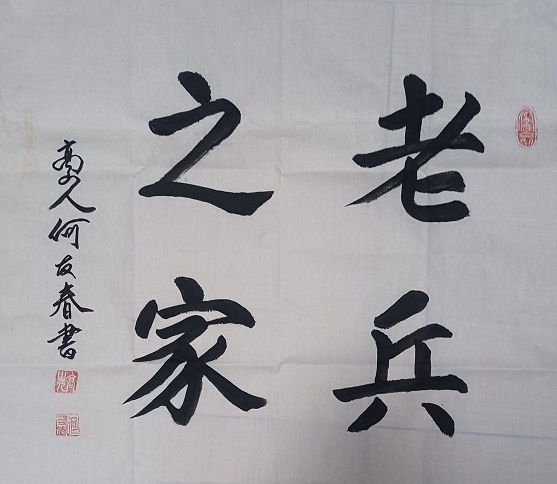 老兵
之家
高人何友春書